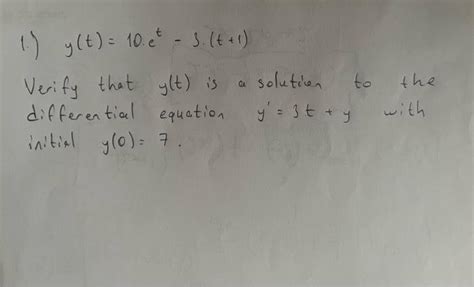 1.) y(t) = 10.e^t - 3.(t+1)
Verify that y(t) is a solution to the
differential equation y' = 3t + y with
initial y(0) = 7.